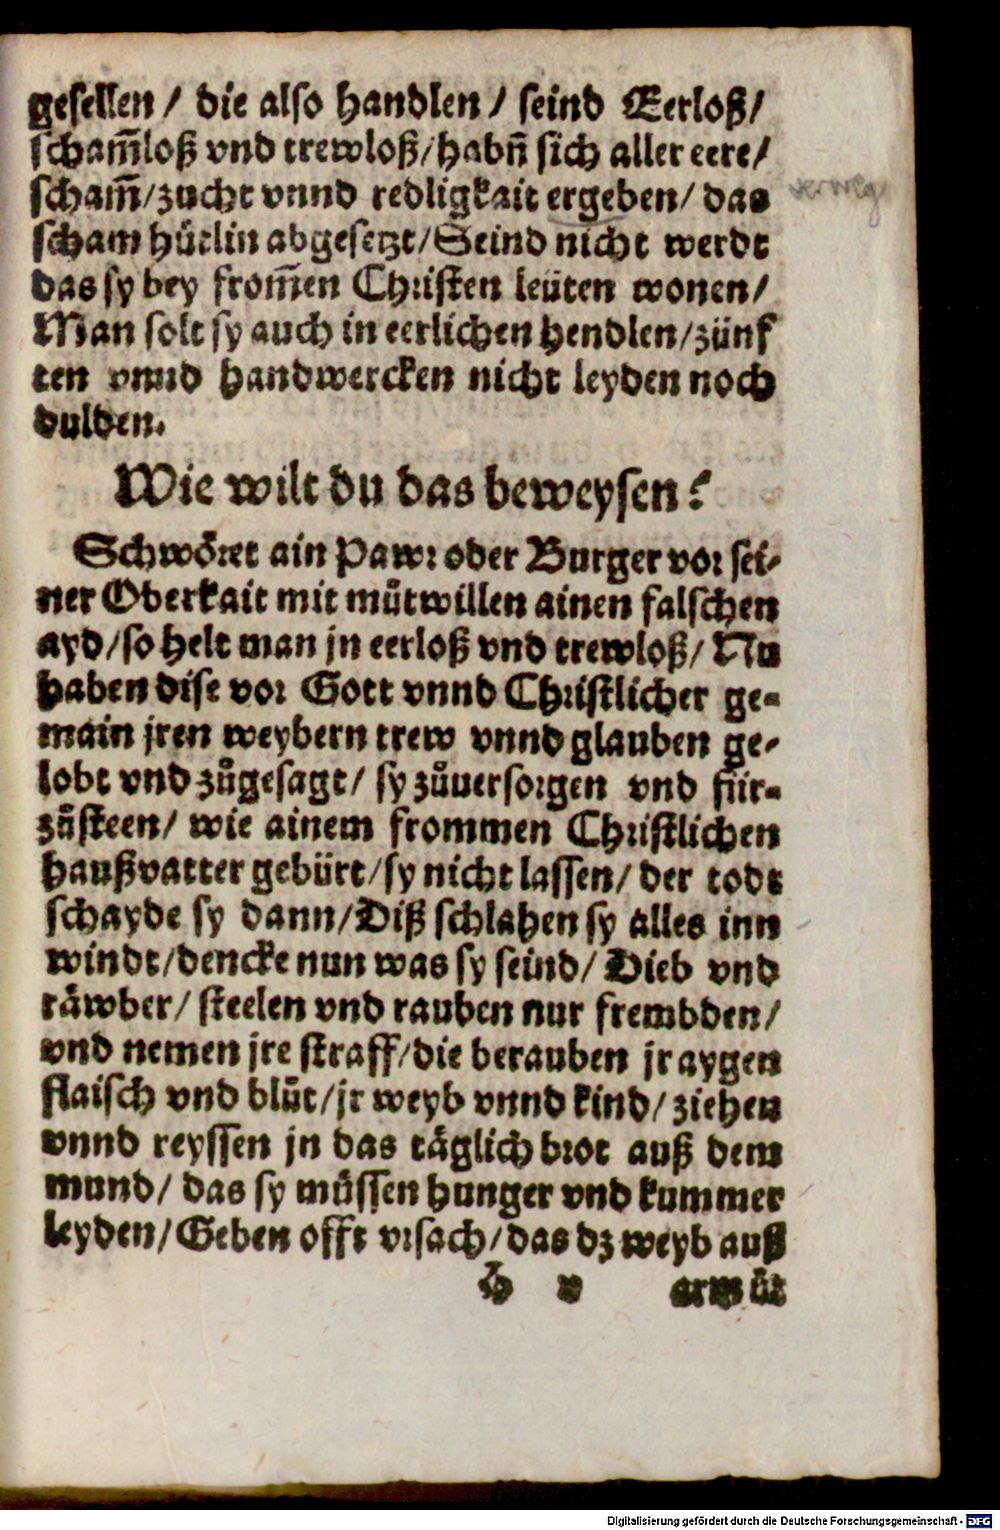 gesellen / die also handlen / seind Eerloß /
scham̄loß vnd trewloß / habn̄ sich aller eere /
scham̄ / zucht vnnd redligkait ergeben / das
scham hütlin abgesetzt / Seind nicht werdt
das sy bey from̄en Christen leüten wonen /
Man solt sy auch in eerlichen hendlen / zünf
ten vnnd handwercken nicht leyden noch
dulden.
Wie wilt du das beweysen?
Schwöret ain Pawr oder Burger vor sei-
ner Oberkait mit můtwillen ainen falschen
ayd / so helt man jn eerloß vnd trewloß / Nu
haben dise vor Gott vnnd Christlicher ge-
main jren weybern trew vnnd glauben ge-
lobt vnd zůgesagt / sy zůuersorgen vnd für-
zůsteen / wie ainem frommen Christlichen
haußvatter gebürt / sy nicht lassen / der todt
schayde sy dann / Diß schlahen sy alles inn
windt / dencke nun was sy seind / Dieb vnd
räwber / steelen vnd rauben nur frembden /
vnd nemen jre straff / die berauben jr aygen
flaisch vnd blůt / jr weyb vnnd kind / ziehen
vnnd reyssen jn das täglich brot auß dem
mund / das sy müssen hunger vnd kummer
leyden / Geben offt vrsach / das dz weyb auß
v armůt
Digitalisierung gefördert durch die Deutsche Forschungsgemeinschaft - DFG